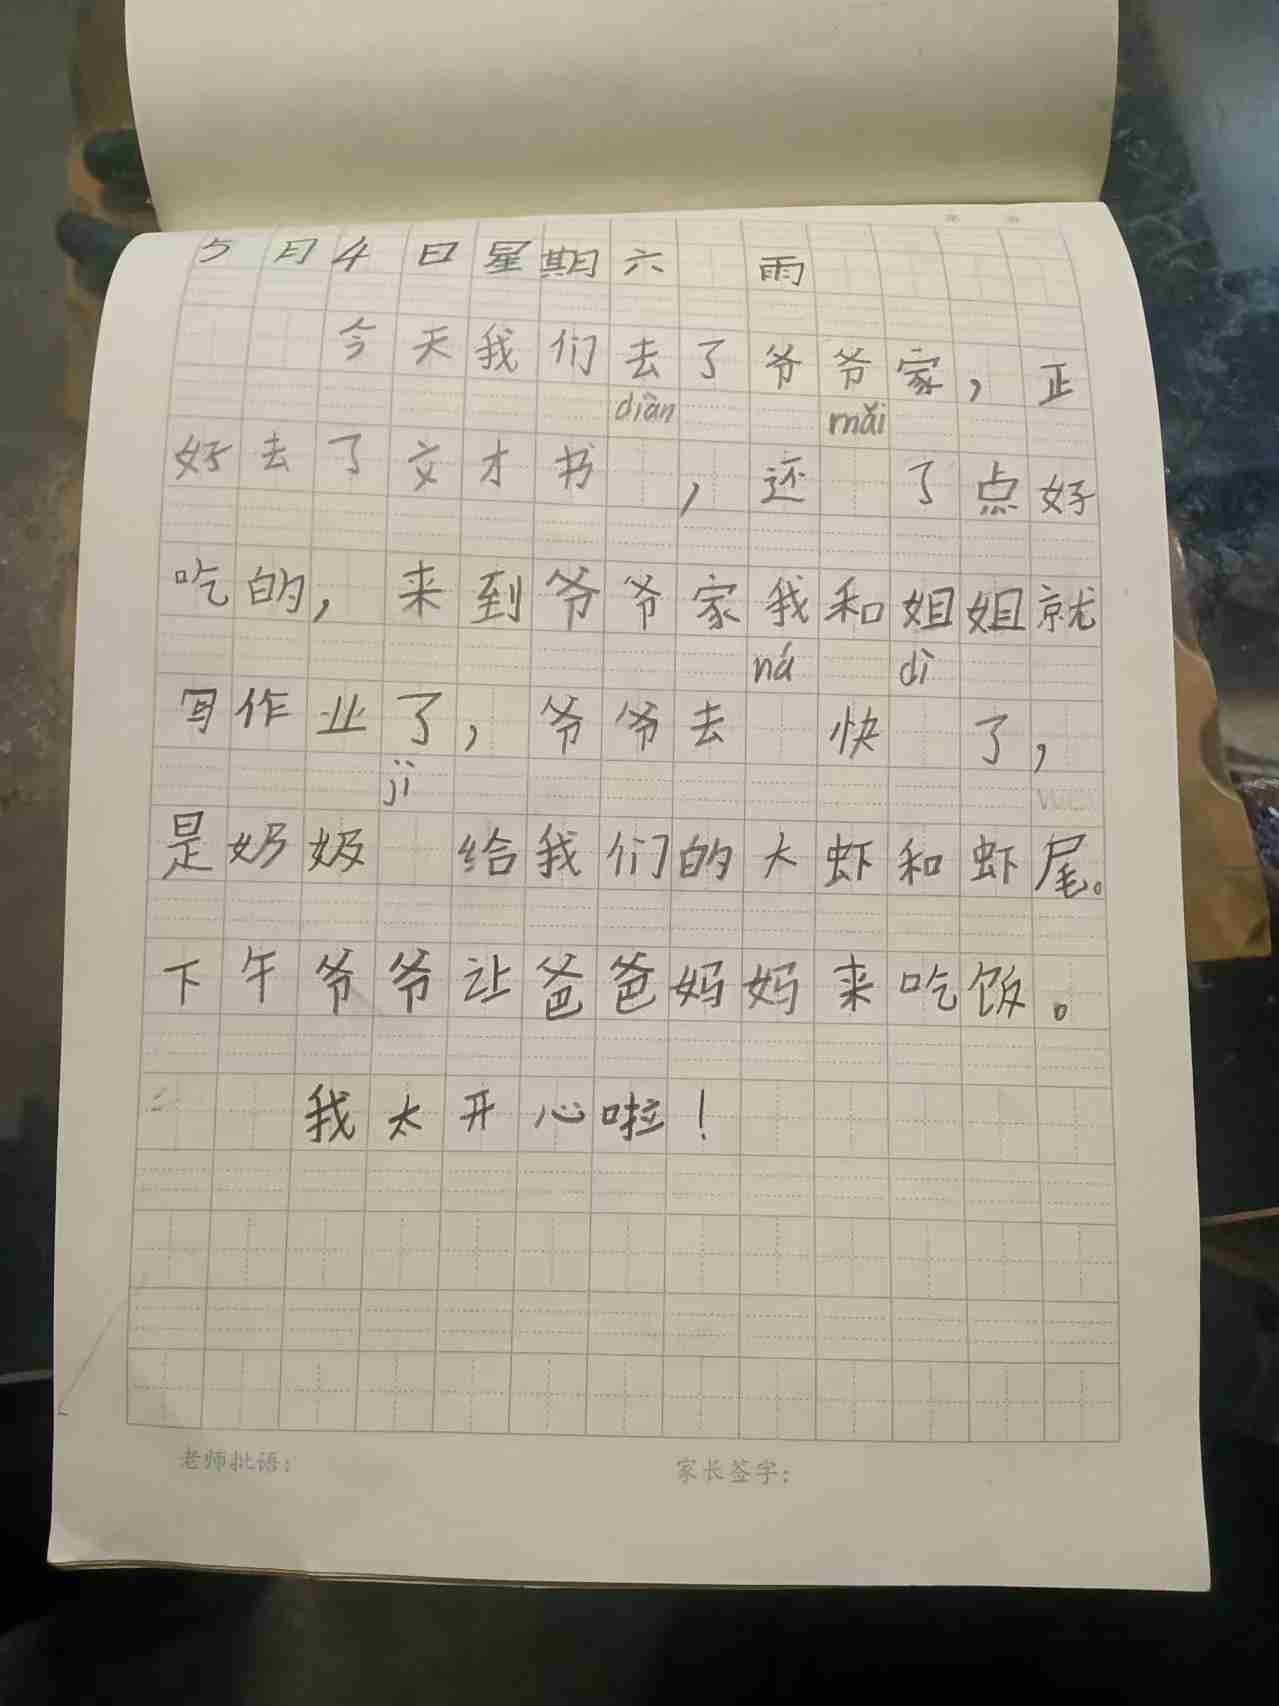 5月4日星期六 雨
今天我们去了爷爷家，正
diàn mǎi
好去了文才书 ，还 了点好
吃的，来到爷爷家我和姐姐就
ná dì
写作业了，爷爷去 快 了，
jì
是奶奶 给我们的大虾和虾尾。
下午爷爷让爸爸妈妈来吃饭。
我太开心啦！
老师批语：
家长签字：